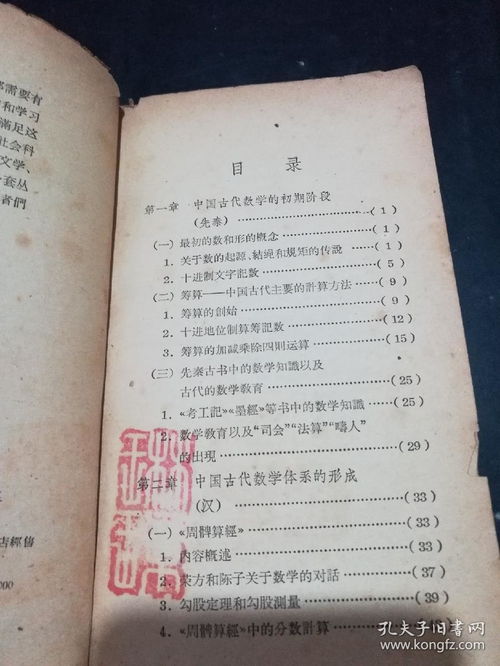 部需要有
和学习
滿足这
社会科
文学、
一套丛
者們
店經售
000
目 录
第一章 中国古代数学的初期阶段
(先秦) ……………………( 1 )
(一) 最初的数和形的概念 ……………( 1 )
1. 关于数的起源、結绳和规矩的传說 ……( 1 )
2. 十进制文字記数 ……………………( 5 )
(二) 筹算——中国古代主要的計算方法 ……( 9 )
1. 筹算的創始 ……………………( 9 )
2. 十进地位制算筹記数 ……………(12)
3. 筹算的加减乘除四則运算 …………(15)
(三) 先秦古书中的数学知識以及
古代的数学教育 ……………………(25)
1. «考工記»«墨經»等书中的数学知識……(25)
2. 数学教育以及“司会”“法算”“疇人”
的出現 ……………………………(29)
第二章 中国古代数学体系的形成
(汉) ……………………………(33)
(一) «周髀算經» ……………………(33)
1. 内容概述 ……………………(33)
2. 荣方和陈子关于数学的对話 …………(37)
3. 勾股定理和勾股测量 ……………(39)
4. «周髀算經»中的分数計算 …………
孔夫子旧书网
www.kongfz.com